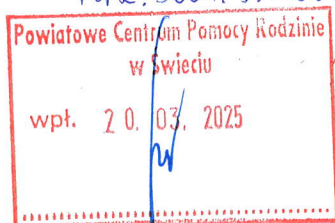 Powiatowe Centrum Pomocy Rodzinie
w Świeciu
wpł. 20. 03. 2025